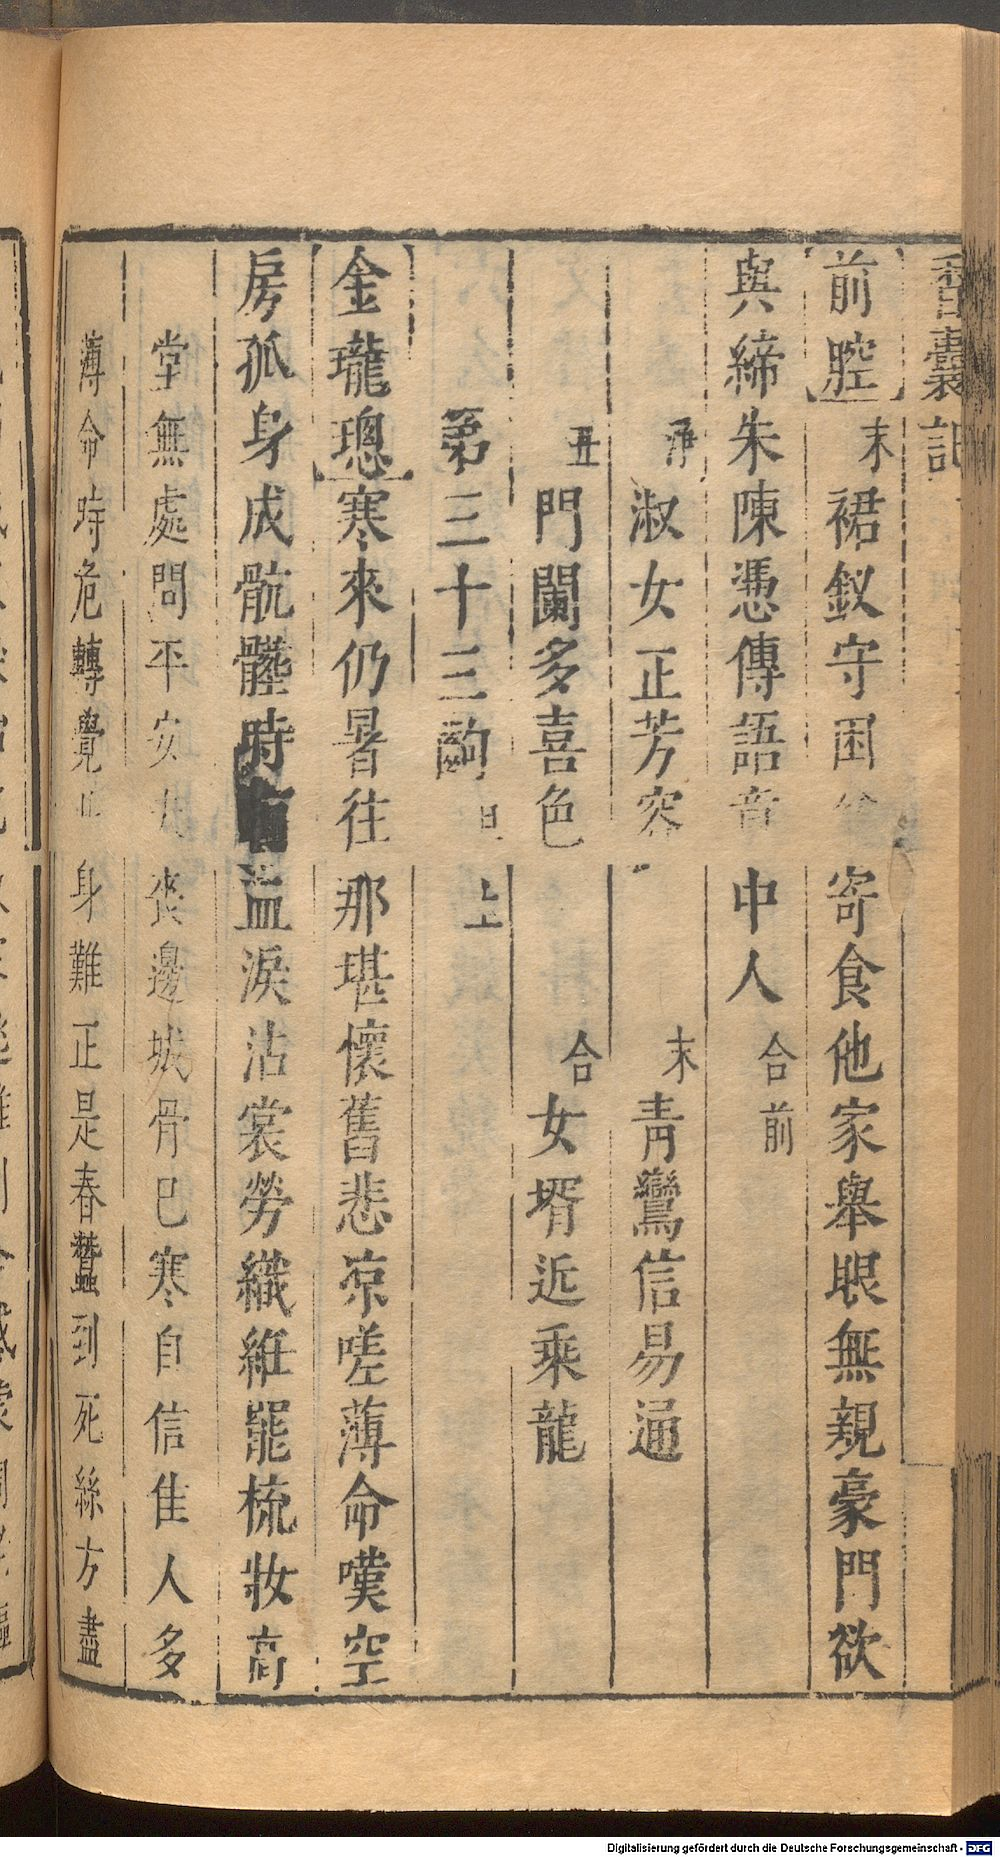 香囊記
前腔 末 裙釵守困 寄食他家舉眼無親豪門欲
與締朱陳憑傳語音中人 合前
淨 淑女正芳容 末 青鸞信易通
丑 門闌多喜色 合 女壻近乘龍
第三十三齣 旦上
金瓏璁 寒來仍暑往那堪懷舊悲凉嗟薄命嘆空
房孤身成骯髒時 盈淚沾裳勞織維罷梳妝高
堂無處問平安 喪邊城骨已寒自信佳人多
薄命時危轉覺 身難正是春蠶到死絲方盡
Digitalisierung gefördert durch die Deutsche Forschungsgemeinschaft - DFG